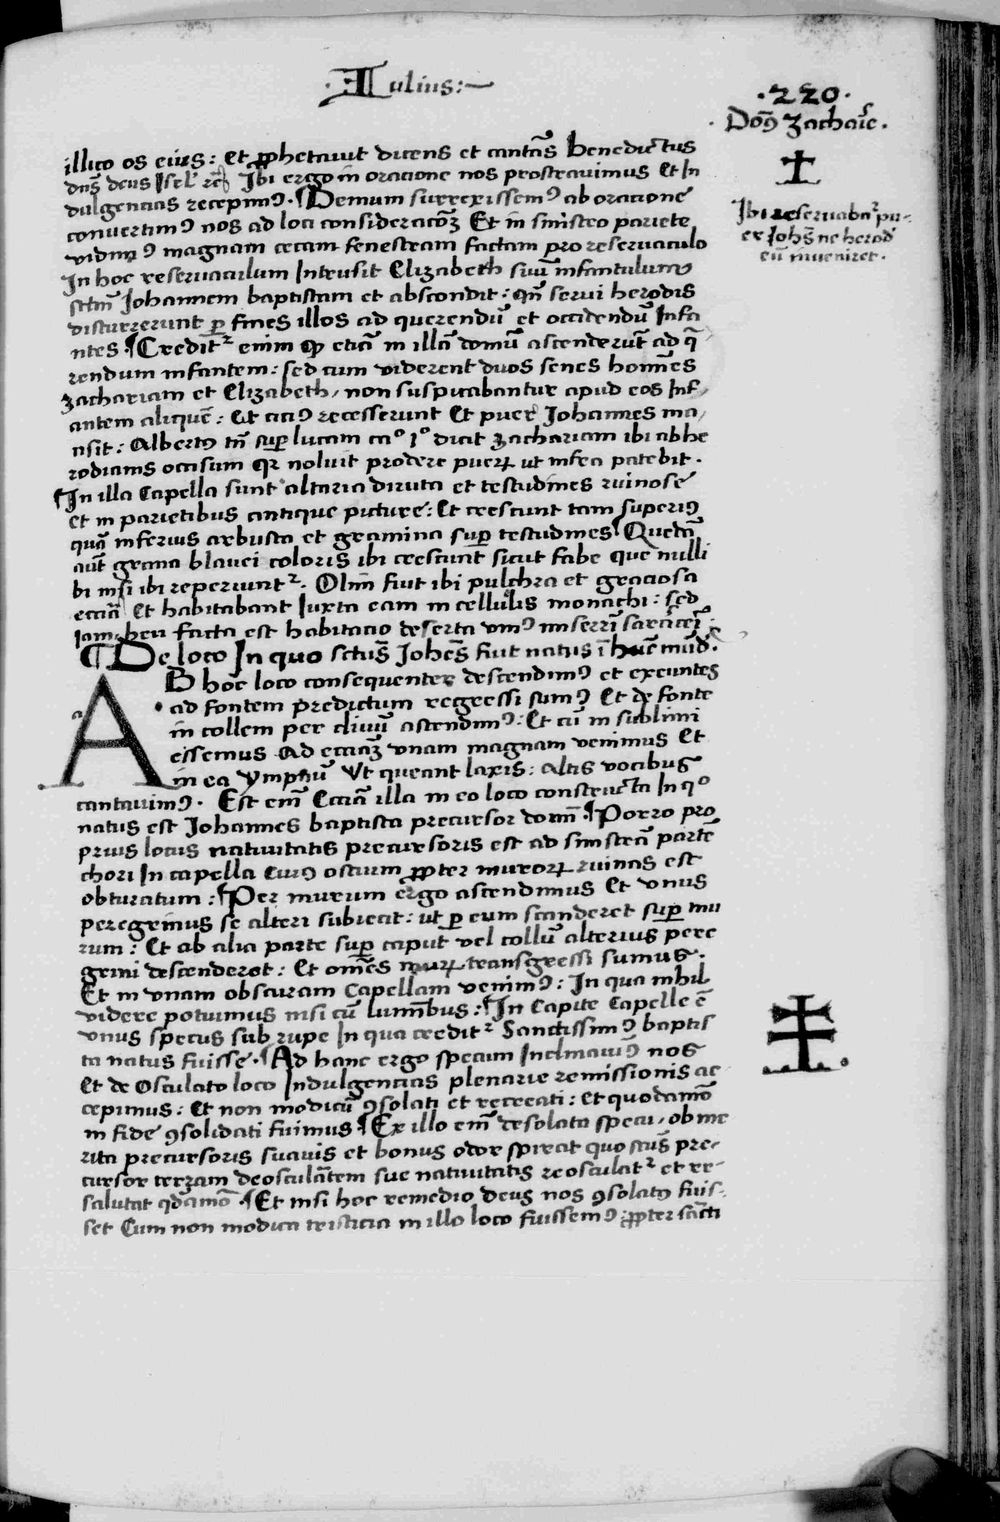 Iulius:
·220·
Dom9 Zacharie.
illico os eius: Et ꝓphetauit dicens et cantās Benedictus
dn̄s deus Isrl' rc̄ Ibi ergo in oracione nos prostrauimus Et In
dulgencias recepim9. ¶Demum surrexissem9 ab oracione
conuertim9 nos ad loci consideracoēꝫ Et in sinistro pariete
vidim9 magnam cecam fenestram factam pro reseruaculo
In hoc reseruaculum Intrusit Elizabeth suū infantulum
sctm̄ Johannem baptistam et abscondit: qn̄ serui herodis
discurrerunt ꝑ fines illos ad querendū et occidendū Infa
ntes ¶Creditr enim ꝙ eciā in illā domū ascenderūt ad q̄
rendum infantem: sed cum viderent duos senes homīes
Zachariam et Elizabeth, non suspicabantur apud eos Inf
antem aliquē: Et cici9 recesserunt Et puer Johannes ma
nsit: Albert9 tn̄ suꝑ lucam cao 1o dicit Zachariam ibi abhe
rodianis occisum qr noluit prodere pueꝝ ut infra patebit.
¶In illa Capella sunt altaria diruta et testudines ruinose
et in parietibus antique picture: Et crescunt tam superi9
quā inferius arbusta et gramina suꝑ testudines ¶Quedā
aūt grana blauei coloris ibi crescunt sicut fabe que nulli
bi nisi ibi reperiuntr. Olim fuit ibi pulchra et graciosa
eccīa Et habitabant Iuxta eam in cellulis monachi: sed
iam heu facta est habitacio deserta vni9 miserri sarraceī:
¶De loco In quo sctus̄ Johēs fuit natus ī hūc mūd.
AB hoc loco consequenter descendim9 et exeuntes
ad fontem predictum regressi sum9 Et de fonte
in collem per cliuū ascendim9: Et cū in sublimi
essemus Ad ecciaꝫ vnam magnam venimus Et
in ea ympnū Vt queant laxis: altis vocibus
cantauim9. Est em̄ Eccīa illa in eo loco constructa In qo
natus est Johannes baptista precursor domī ¶Porro pro
prius locus natiuitatis precursoris est ad sinistrā partē
chori In capella cui9 ostium ꝓpter muroꝝ ruinas est
obturatum: ¶Per murum ergo ascendimus Et vnus
peregrinus se alteri subiecit: ut ꝑ eum scanderet suꝑ mu
rum: Et ab alia parte suꝑ caput vel collū alterius pere
grini descenderet: Et om̄es muꝝ transgressi sumus.
Et in vnam obscuram Capellam venim9: In qua nihil
videre potuimus nisi cū luminībus: ¶In Capite Capelle ē
vnus specus sub rupe In qua creditr Sanctissim9 baptis
ta natus fuisse. ¶Ad hanc ergo specum Inclinauim9 nos
Et de Osculato loco Indulgencias plenarie remissionis ac
cepimus: Et non modicū 9solati et recreati: Et quodāmō
in fide 9solidati fuimus ¶Ex illo em̄ desolato specu, ob me
rita precursoris suauis et bonus odor spirat quo sctus̄ pre-
cursor terram deosculātem sue natiuitatis reosculatr et re-
salutat qdāmō. ¶Et nisi hoc remedio deus nos 9solat9 fuis-
set Cum non modica tristicia in illo loco fuissem9 ꝓpter sācti
Ibi reseruabatr pu-
er Johēs ne herod
eū inueniret.